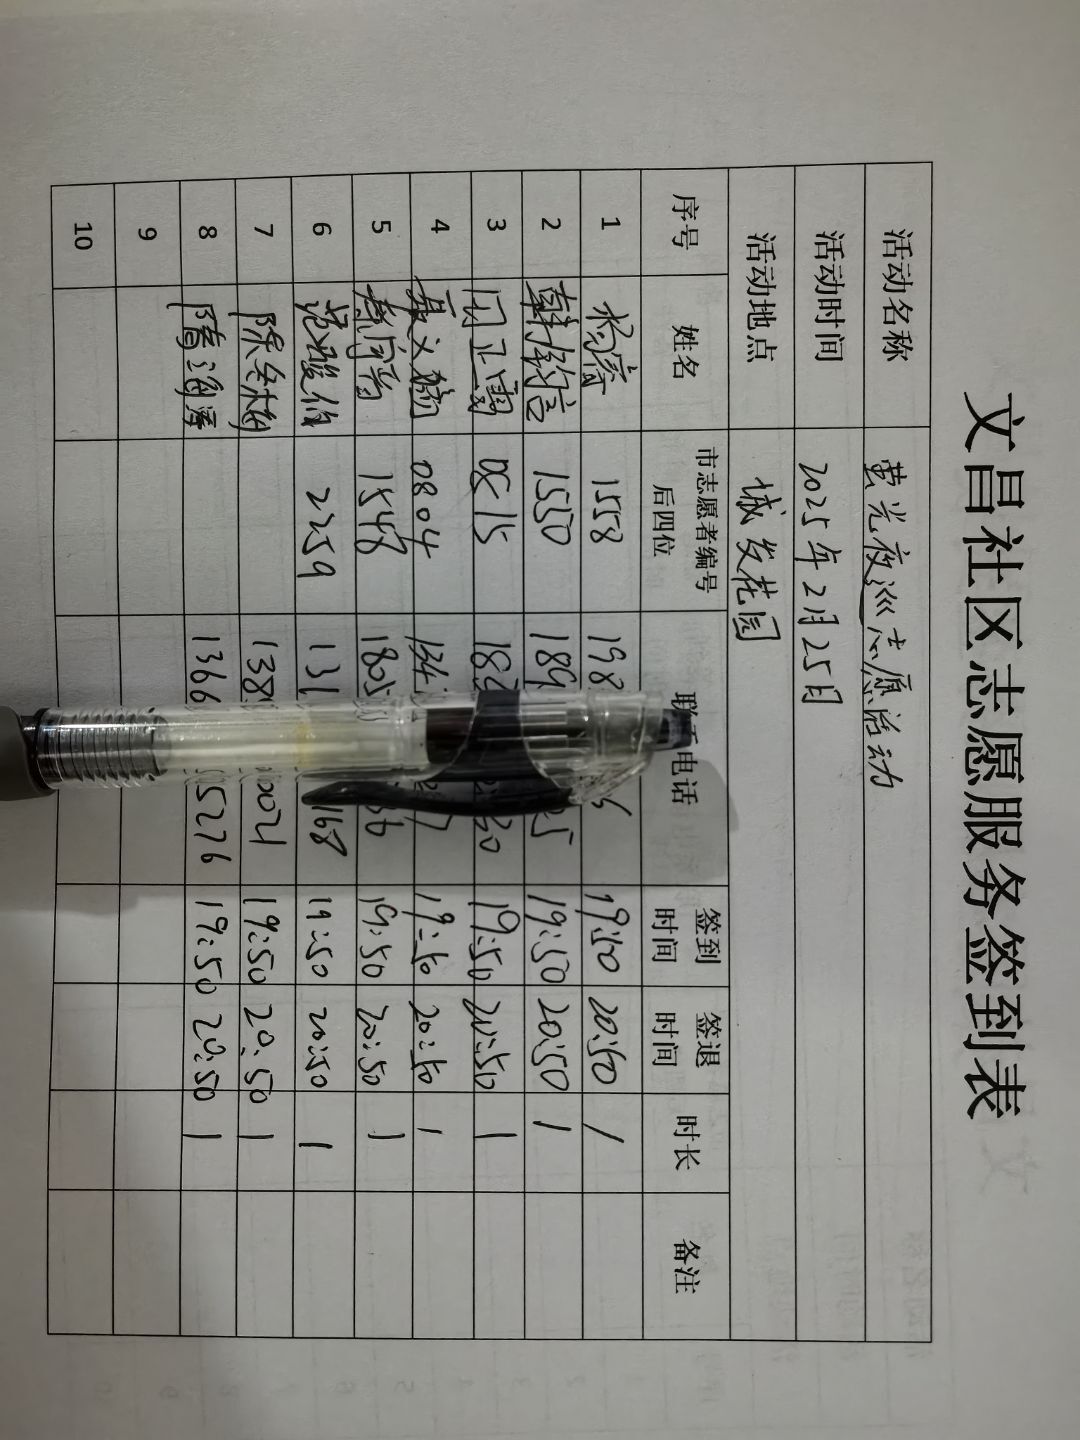 文昌社区志愿服务签到表
活动名称 萤光夜巡志愿活动
活动时间 2025年2月25日
活动地点 城发花园
序号 姓名 市志愿者编号后四位 联系电话 签到时间 签退时间 时长 备注
1 1558 198 19:50 20:50 1
2 1550 189 5 19:50 20:50 1
3 闫正国 0815 18 20 19:50 20:50 1
4 聂文 0804 134 7 19:50 20:50 1
5 1548 1805 36 19:50 20:50 1
6 范俊伯 2259 131 168 19:50 20:50 1
7 陈冬梅 138 0021 19:50 20:50 1
8 隋海涛 1366 5276 19:50 20:50 1
9
10